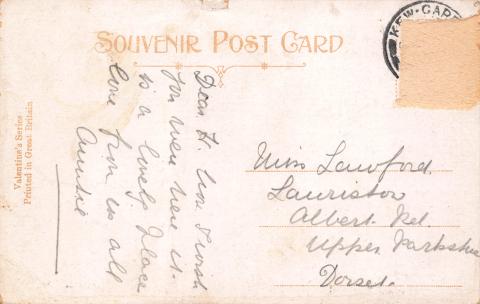 SOUVENIR POST CARD
KEW·GARD
Valentine's Series
Printed in Great Britain
Dear H. Um I wish
you were here it
is a lovely place
love from us all
Auntie
Miss Lawford.
Lauriston
Albert Rd.
Upper Parkstone
Dorset.